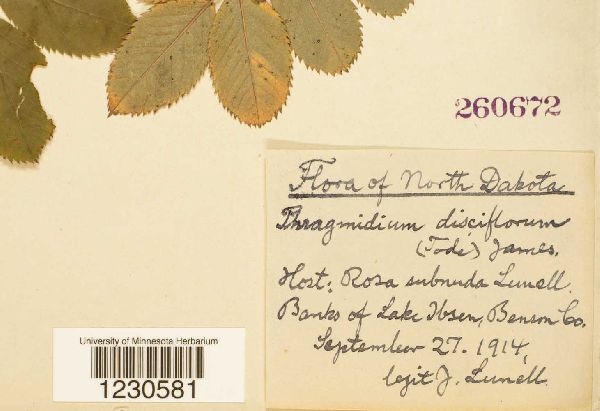 260672
Flora of North Dakota
Phragmidium disciflorum
(Tode) James.
Host: Rosa subnuda Lunell.
Banks of Lake Ibsen, Benson Co.
September 27. 1914,
legit J. Lunell.
University of Minnesota Herbarium
1230581